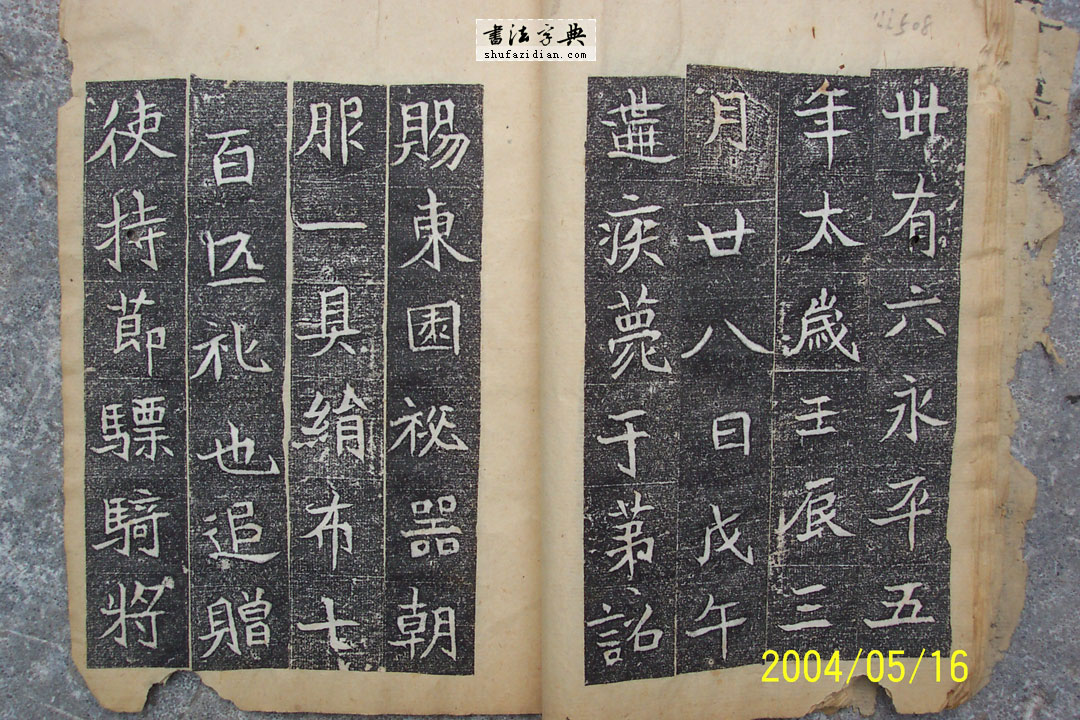 書法字典
shufazidian.com
22508
卌有六永平五
年太歲壬辰三
月廿八日戊午
遘疾薨于苐詔
賜東園秘器朝
服一具絹布七
百匹礼也追贈
使持節驃騎將
2004/05/16